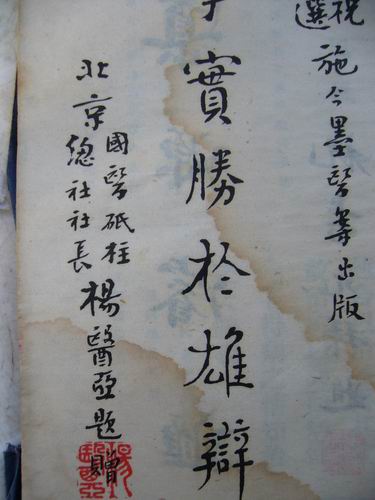 祝選施今墨醫案出版
實勝於雄辯
北京國醫砥柱總社社長楊醫亞題贈